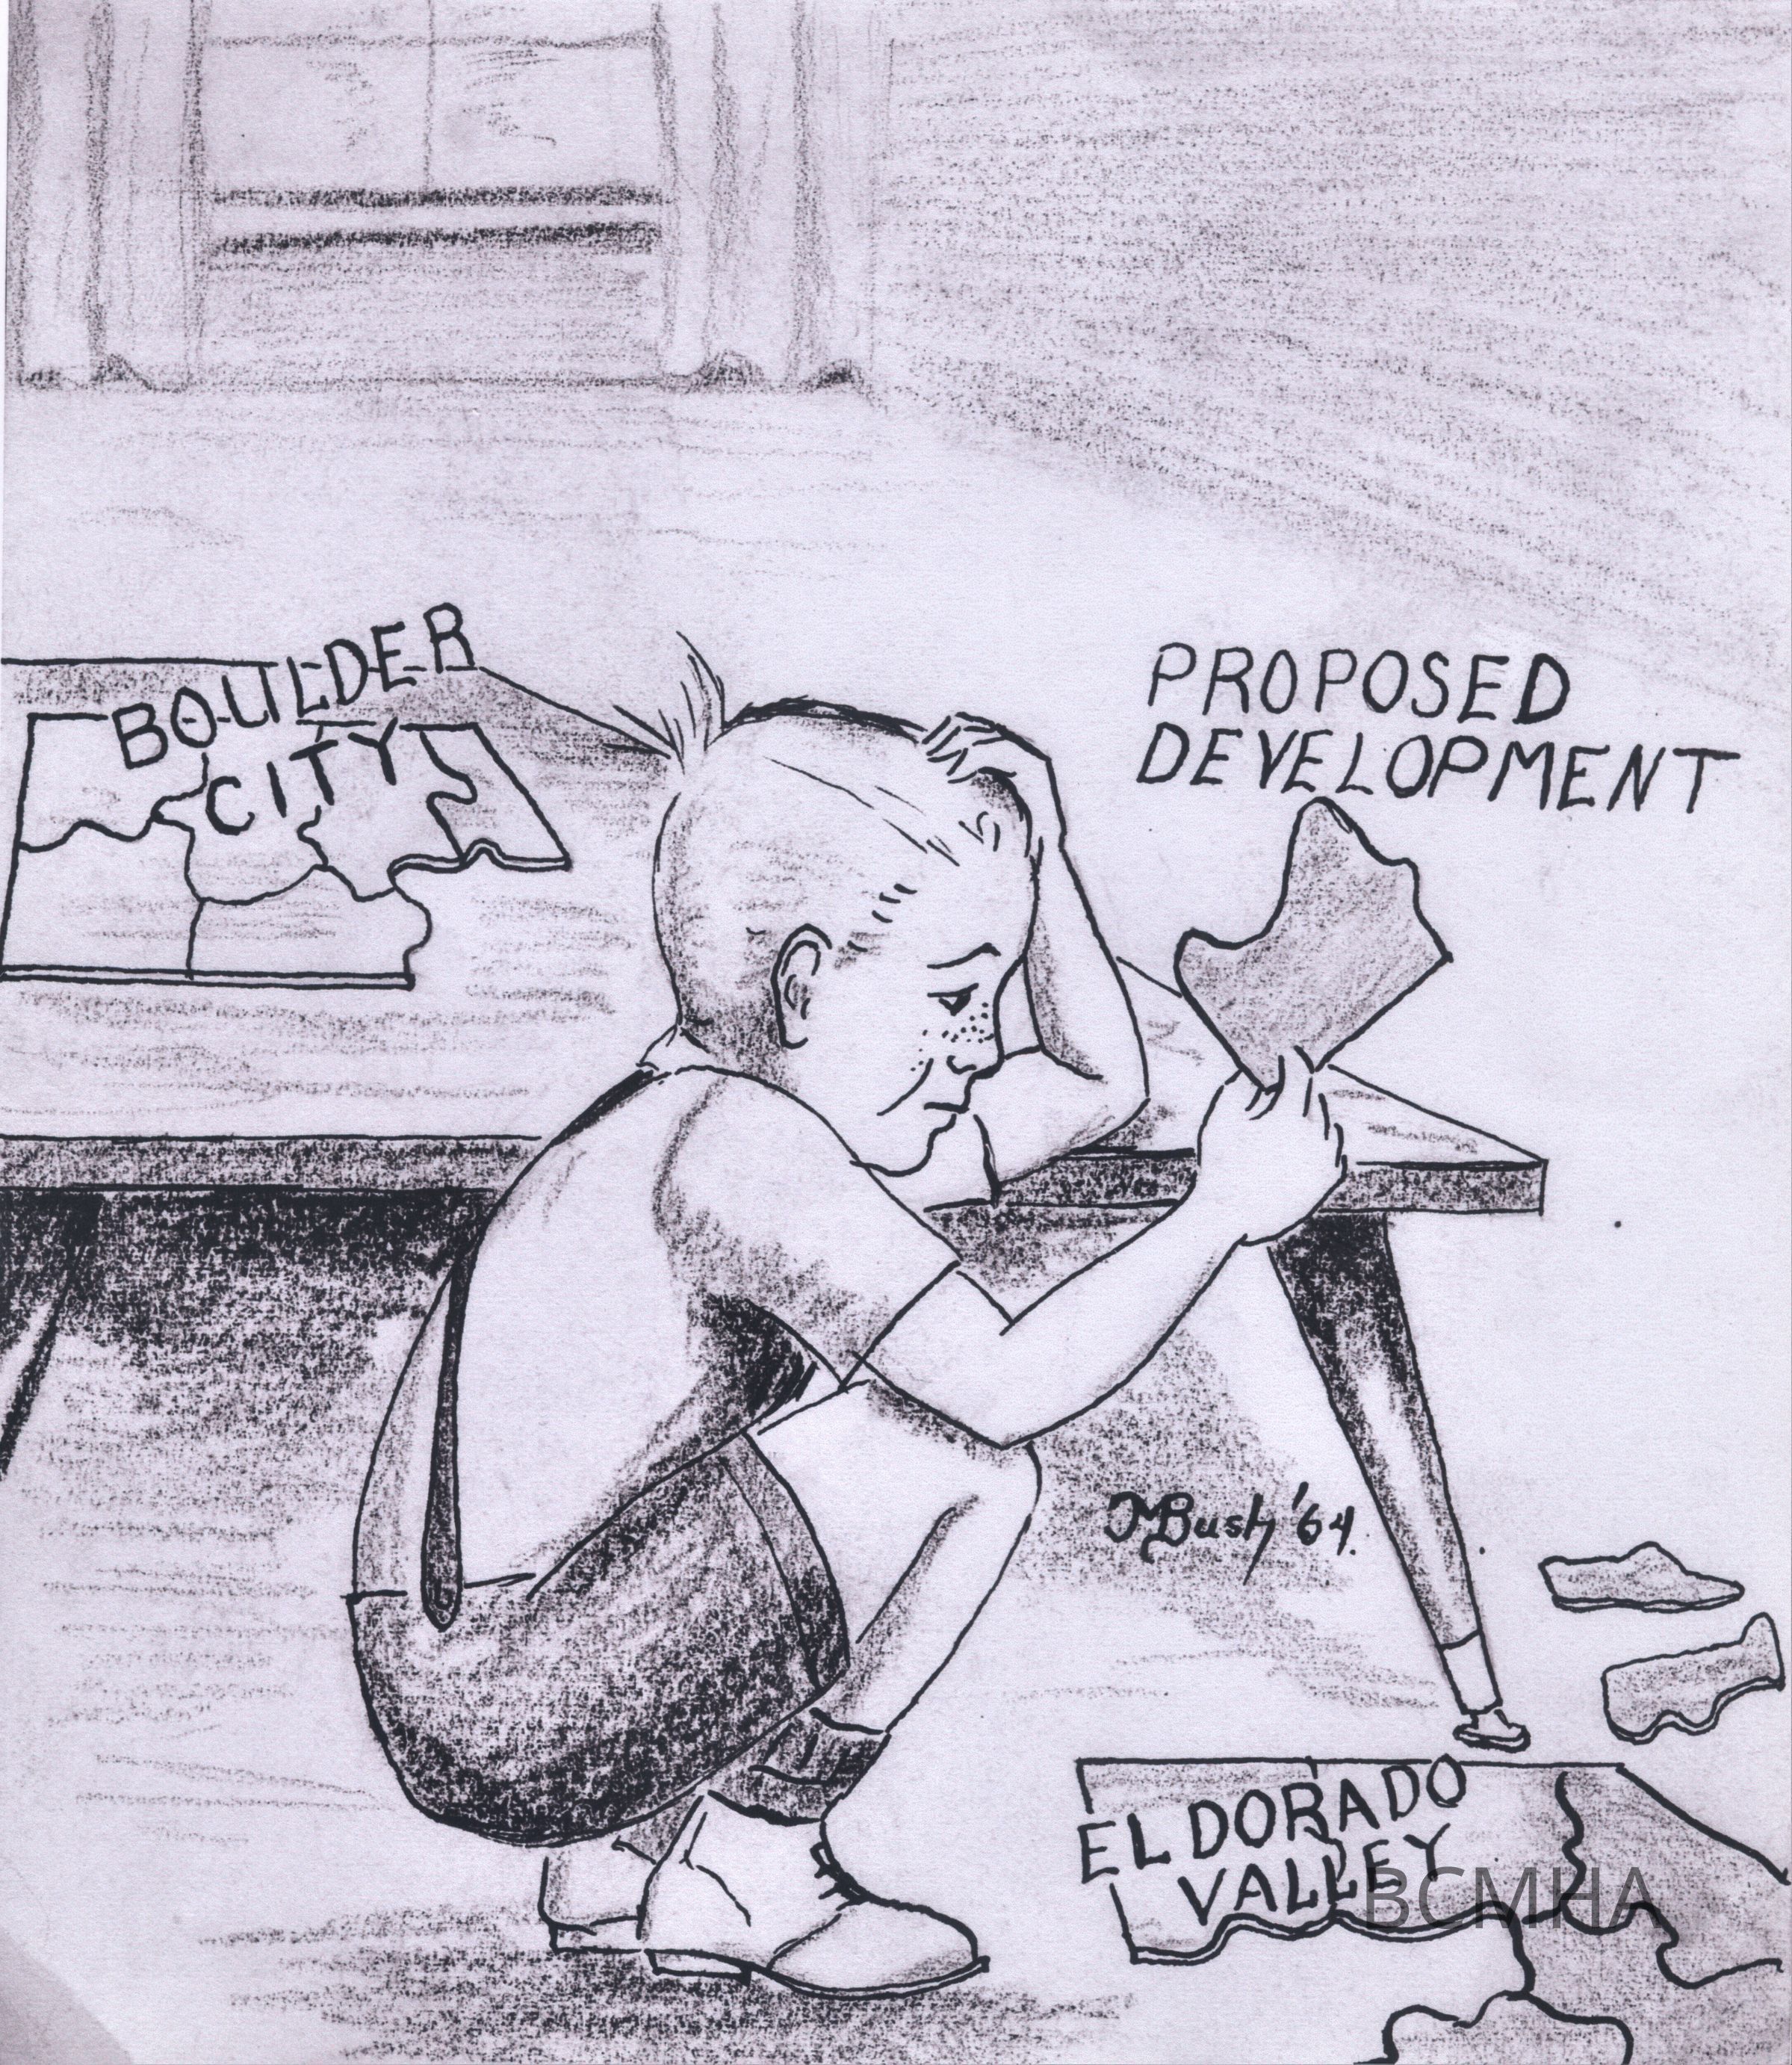 BOULDER
CITY
PROPOSED
DEVELOPMENT
MBush '64.
ELDORADO
VALLEY
BCMHA